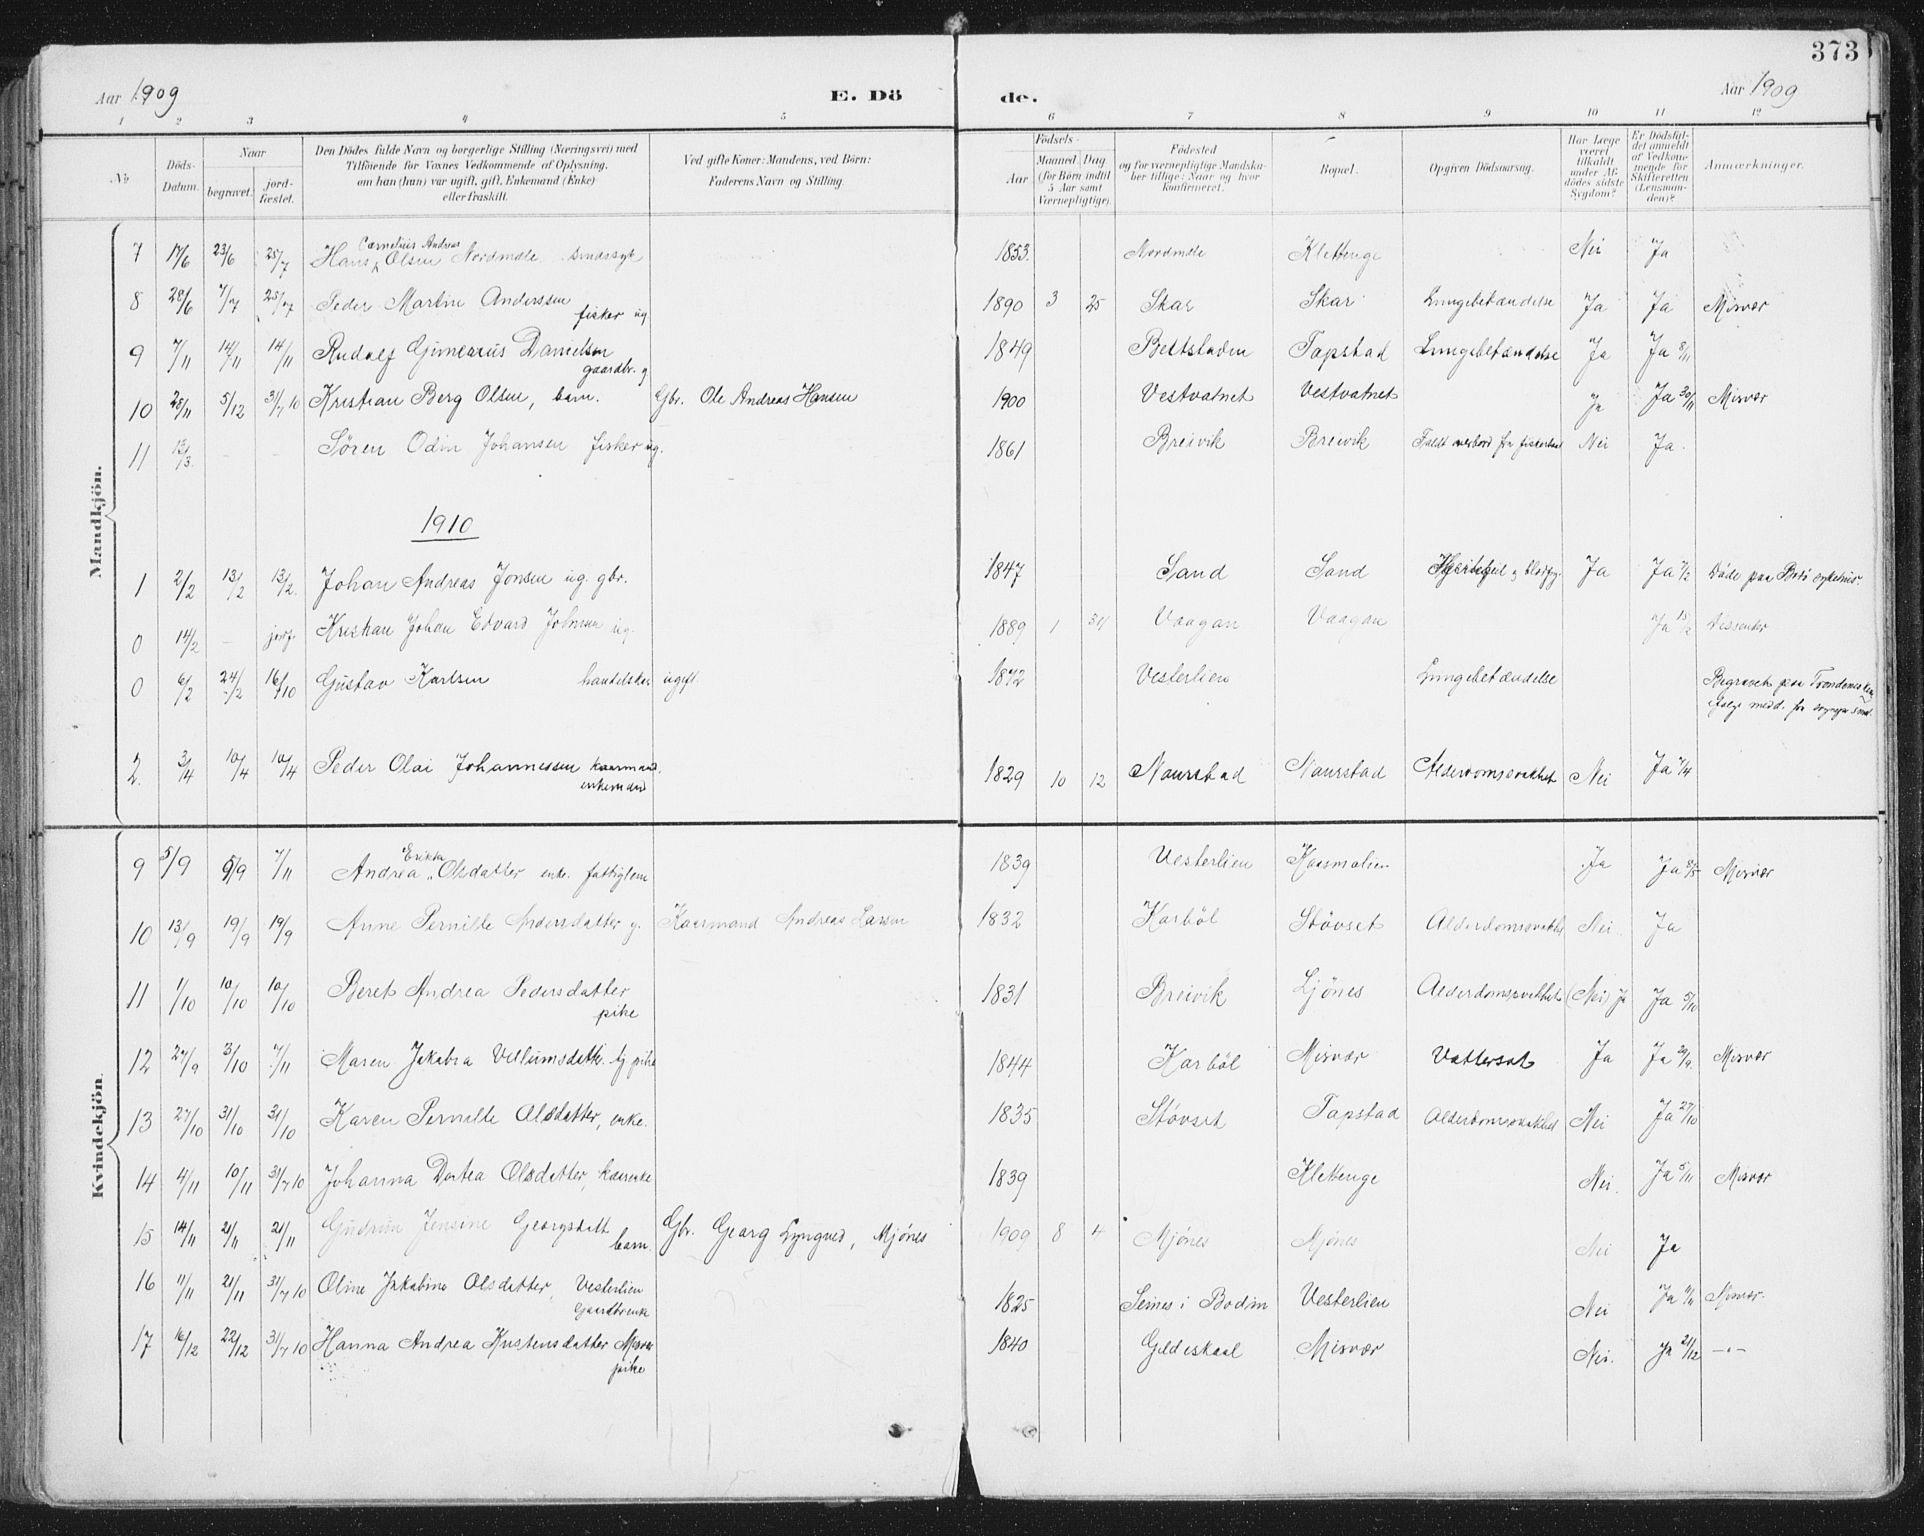 373
Aar 1909 E. Dö de. Aar 1909
1 2 3 4 5 6 7 8 9 10 11 12
No. Döds-Datum. Naar begravet. jord-fæstet. Den Dödes fulde Navn og borgerlige Stilling (Næringsvei) med Tilföiende for Voxnes Vedkommende af Oplysning, om han (hun) var ugift, gift, Enkemand (Enke) eller fraskilt. Ved gifte Koner: Mandens, ved Börn: Faderens Navn og Stilling. Födsels- Aar Maaned Dag (for Börn indtil 5 Aar samt Værnepligtige). Födested og for værnepligtige Mandskaber tillige: Naar og hvor konfirmeret. Bopæl. Opgiven Dödsaarsag. Har Læge været tilkaldt under Afdödes sidste Sygdom? Er Dödsfaldet anmeldt af Vedkommende for Skifteretten (Lensmanden)? Anmærkninger.
Mandkjön.
7 17/6 23/6 25/7 Hans Cornelius Andreas Olsen Nordmæle sindssyk 1853. Nordmæle Klettenge Nei Ja
8 28/6 7/7 25/7 Peder Martin Anderssen fisker ug. 1890 3 25 Skar Skar Lungebetændelse Ja Ja Misvær
9 7/11 14/11 14/11 Rudolf Danielsen gaardbr. g 1849 Beitstaden Tapstad Lungebetændelse Ja Ja 8/11
10 28/11 5/12 31/7 10 Kristian Berg Olsen, barn. Gbr. Ole Andreas Hansen 1900 Vestvatnet Vestvatnet Ja Ja 30/11 Misvær
11 13/3. Sören Odin Johansen fisker ug. 1861 Breivik Breivik Faldt overbord fra Nei Ja.
1910
1 2/2 13/2 13/2. Johan Andreas Jonsen ug. gbr. 1847 Sand Sand Ja Ja 7/2 Döde paa Bodö sykehus.
0 14/2 — jordf. Kristian Johan Edvard Johnsen ug. 1889 1 31 Vaagan Vaagan Ja 15/2 Dissenter
0 6/2 24/2 16/10 Gustav Karlsen ugift. 1872 Vesterlien Lungebetændelse Begravet paa
2. 3/4 10/4 10/4 Peder Olai Johannessen kaarmand. enkemand 1829 10 12 Naurstad Naurstad Alderdomssvakhet Nei Ja 7/4
Kvindekjön.
9 5/9 5/9 7/11 Andrea Erikka Olsdatter enke. fattiglem 1839 Vesterlien Kaasmolien Ja Ja 8/5 Misvær
10 13/9 19/9 19/9 Anne Pernille Andersdatter g. Kaarmand Andreas Larsen 1832 Karböl Stövset Alderdomssvakhet Nei Ja
11 1/10 10/10 10/10 Beret Andrea Pedersdatter pike 1831 Breivik Ljönes Alderdomssvakhet (Nei) Ja Ja 5/10
12 27/9 3/10 7/11 Maren Jakobia Villumsdatt. pike 1844 Karböl Misvær Vattersot Ja Ja 29/9 Misvær
13 27/10 31/10 31/10 Karen Pernille Olsdatter, enke. 1835 Stövset Tapstad Alderdomssvakhet Nei Ja 27/10
14 4/11 10/11 31/7 10 Johanna Dortea Olsdatter, kaarenke 1839 Klettenge Nei. Ja 5/11 Misvær
15 14/11 21/11 21/11 Gudrun Jensine Georgsdatt barn. Gbr. Georg Lyngved, Mjönes 1909 8 4 Mjönes Mjönes Nei Ja
16 11/11 21/11 31/7 10 Oline Jakobine Olsdatter, Vesterlien Gaardbrenk 1825 Seines i Bodin Vesterlien Nei Ja Misvær.
17 16/12 22/12 31/7 10 Hanna Andrea Kristensdatter Misvær pike 1840 Gildeskaal Misvær Nei. Ja 21/12 —"—